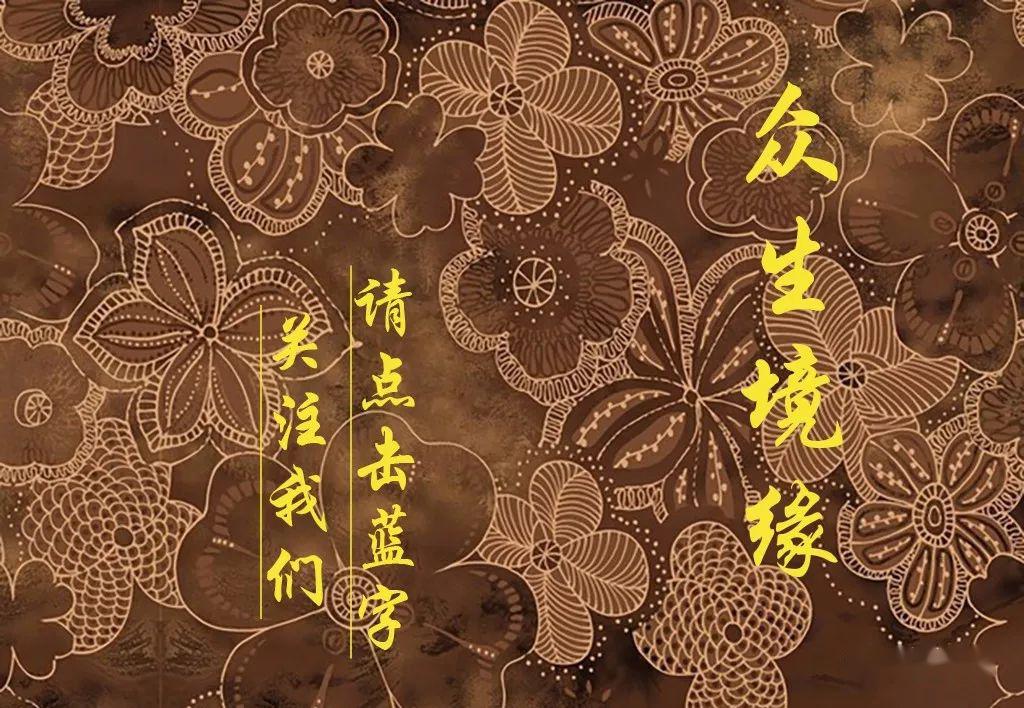 众生境缘
请点击蓝字
关注我们